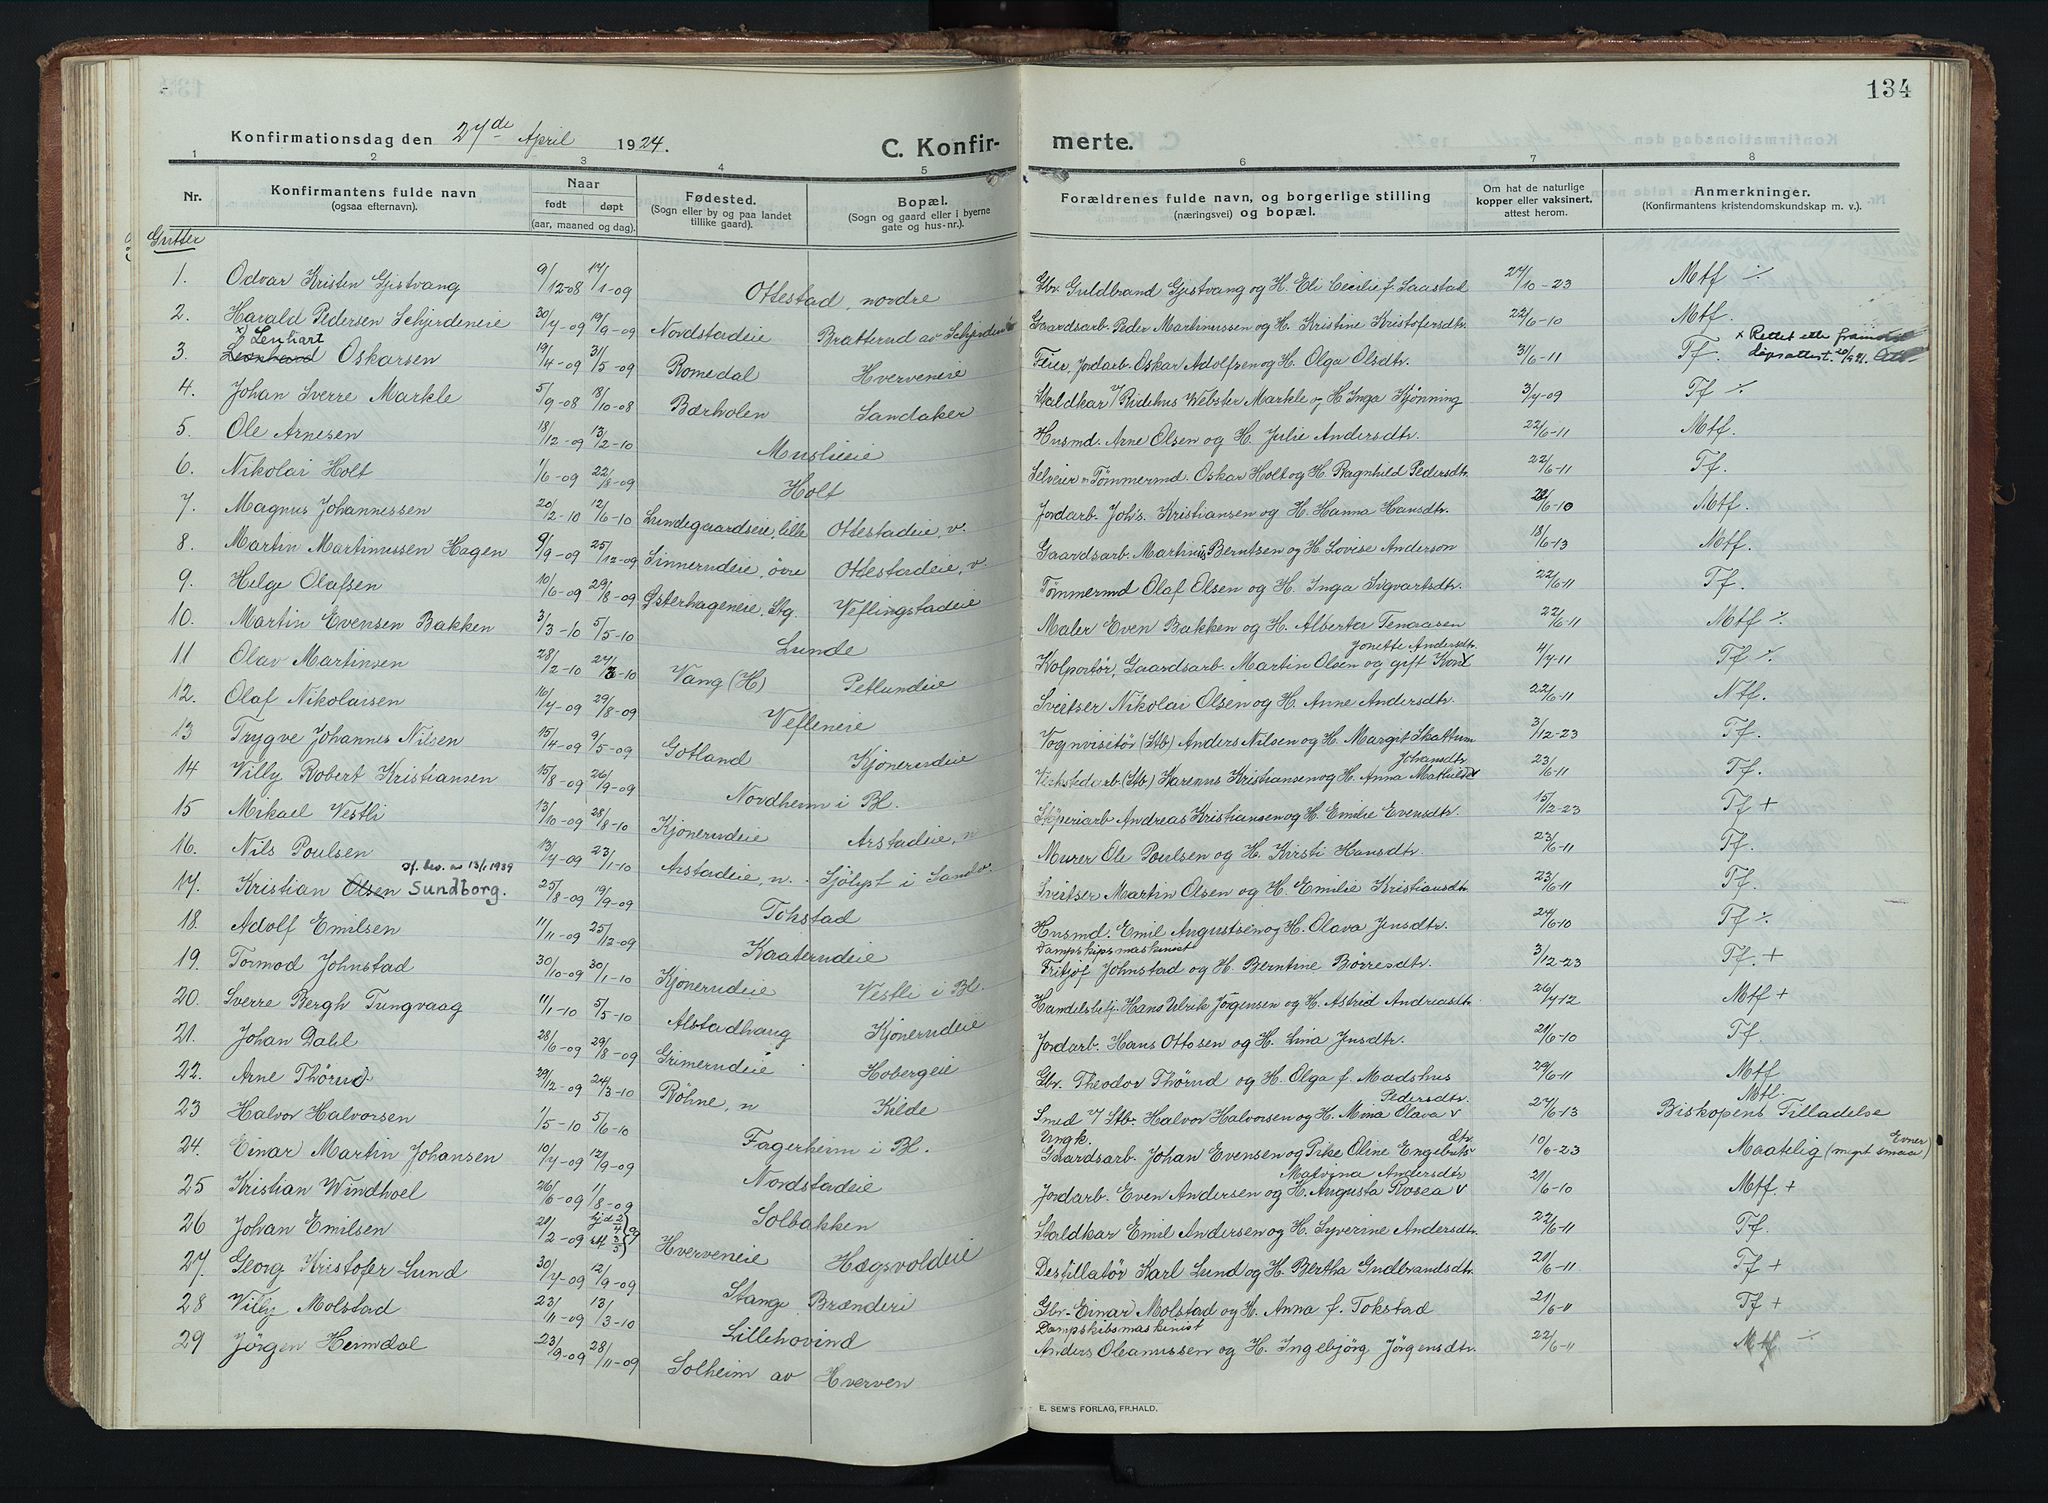 134
Konfirmationsdag den 27de April 1924.
C. Konfirmerte.
1 2 3 4 5 6 7 8
Nr. Konfirmantens fulde navn (ogsaa efternavn). Naar født døpt (aar, maaned og dag). Fødested. (Sogn eller by og paa landet tillike gaard). Bopæl. (Sogn og gaard eller i byerne gate og hus-nr.). Forældrenes fulde navn, og borgerlige stilling (næringsvei) og bopæl. Om hat de naturlige kopper eller vaksinert, attest herom. Anmerkninger. (Konfirmantens kristendomskundskap m. v.).
Gutter
1. Odvar Kristen Gjestvang 9/12-08 17/1-09 Ottestad, nordre Gbr. Guldbrand Gjestvang og H. Eli Cecilie f. Saastad 27/10-23 Mtf ÷
2. Harald Pedersen Schjerdeneie 30/7-09 19/9-09 Nordstadeie Bratterud av Schjerden Gaardsarb. Peder Martinussen og H. Kristine Kristofersdtr. 22/6-10 Mtf.
3. x) Lenhart Oskarsen 19/4-09 31/5-09 Romedal Hverveneie Feier, Jordarb. Oskar Adolfsen og H. Olga Olsdtr. 3/6-11 Tf. x Rettet etter
4. Johan Sverre Markle 5/9-08 18/10-08 Bærholen Sandaker Staldkar v/ Ridehus Webster Markle og H. Inga Kjønning 3/7-09 Tf ÷
5. Ole Arnesen 18/12-09 13/2-10 Muslieie Husmd. Arne Olsen og H. Julie Andersdtr. 22/6-11 Mtf.
6. Nikolai Holt 1/6-09 22/8-09 Holt Selveier - Tømmermd. Oskar Holt og H. Ragnhild Pedersdtr. 22/6-11 Tf.
7. Magnus Johannessen 20/2-10 12/6-10 Lundegaardseie, lille Ottestadeie, v. Jordarb. Joh's. Kristiansen og H. Hanna Hansdtr. 22/6-10 Mtf.
8. Martin Martinussen Hagen 9/9-09 25/12-09 Sinnerudeie, øvre Ottestadeie, v. Gaardsarb. Martinus Berntsen og H. Lovise Anderson 18/6-13 Mtf.
9. Helge Olafsen 10/6-09 29/8-09 Østerhageneie, Stg. Veflingstadeie Tømmermd Olaf Olsen og H. Inga Sigvartsdtr. 22/6-11 Tf.
10. Martin Evensen Bakken 3/3-10 5/5-10 Lunde Maler Even Bakken og H. Alberta Tenaasen 22/6-11 Mtf ÷
11 Olav Martinsen 28/2-10 27/3-10 Vang (H) Petlundeie Kolportør, Gaardsarb. Martin Olsen og gift Jonette Andersdtr. 4/7-11 Tf ÷
12. Olaf Nikolaisen 16/7-09 29/8-09 Vefleneie Sveitser Nikolai Olsen og H. Anne Andersdtr. 22/6-11 Ntf.
13 Trygve Johannes Nilsen 15/4-09 9/5-09 Gotland Kjønerudeie Vognvisitør (Stb) Anders Nilsen og H. Margit Skattum 3/12-23 Tf.
14 Villy Robert Kristiansen 15/8-09 26/9-09 Nordheim i Bl. Verkstedarb (Stb) Karenus Kristiansen og H. Anna Mathilde Johansdtr 23/6-11 Tf.
15 Mikael Vestli 13/10-09 28/8-10 Kjønerudeie Arstadeie, n Støperiarb Andreas Kristiansen og H. Emilie Evensdtr. 15/12-23 Tf +
16. Nils Poulsen 13/7-09 23/1-10 Arstadeie, n. Sjølyst i Sandv. Murer Ole Poulsen og H. Kirsti Hansdtr. 23/6-11 Tf.
17. Kristian Olsen Sundborg. jf. bev. av 13/1 1939 25/8-09 19/9-09 Tokstad Sveitser Martin Olsen og H. Emilie Kristiansdtr. 23/6-11 Tf.
18. Adolf Emilsen 11/11-09 25/12-09 Kaaterudeie Husmd. Emil Augustsen og H. Olava Jensdtr. 24/6-10 Tf ÷
19. Tormod Johnstad 30/10-09 30/1-10 Kjønerudeie Vestli i Bl. Dampskipsmaskinist Fritjof Johnstad og H. Berntine Børresdtr. 3/12-23 Tf. +
20. Sverre Bergh Tungvaag 11/1-10 5/5-10 Alstadhaug Kjønerudeie Handelsbetj. Hans Ulrik Jørgensen og H. Astrid Andreasdtr. 26/7-12 Mtf +
21. Johan Dahl 28/6-09 29/8-09 Grimerudeie Hobergeie Jordarb. Hans Ottosen og H. Lina Jensdtr. 21/6-10 Tf.
22. Arne Thørud 29/12-09 24/3-10 Røhne, n Kilde Gbr. Theodor Thørud og H. Olga f. Madshus 29/6-11 Mtf
23 Halvor Halvorsen 1/5-10 5/6-10 Fagerheim i Bl. Smed v/ Stb. Halvor Halvorsen og H. Mina Olava Pedersdtr. 27/6-13 Mtf. Biskopens Tilladelse
24. Einar Martin Johansen 10/7-09 12/9-09 Nordstadeie Ungk. Gaardsarb. Johan Evensen og Pike Oline Engebretsdtr. 10/6-23 Maatelig (meget smaa Evner)
25 Kristian Windhoel 26/6-09 1/8-09 Solbakken Jordarb. Even Andersen og H. Augusta Rosea Malvina Andersdtr 21/6-10 Mtf. +
26 Johan Emilsen 20/2-09 hjd 2/4 st 3/5 09 Hverveneie Hægsvoldeie Staldkar Emil Andersen og H. Syverine Andersdtr. 22/6-11 Tf.
27. Georg Kristofer Lund 30/7-09 12/9-09 Stange Brænderi Destillatør Karl Lund og H. Bertha Gudbrandsdtr. 21/6-11 Tf +
28 Villy Molstad 23/11-09 13/3-10 Lillehovind Gbr. Einar Molstad og H. Anna f. Tokstad 21/6-11 Tf +
29 Jørgen Hemdal 23/9-09 28/11-09 Solheim av Hverven Dampskibsmaskinist Anders Oleanussen og H. Ingebjørg Jørgensdtr. 22/6-11 Mtf ÷
E. SEM'S FORLAG, FR.HALD.